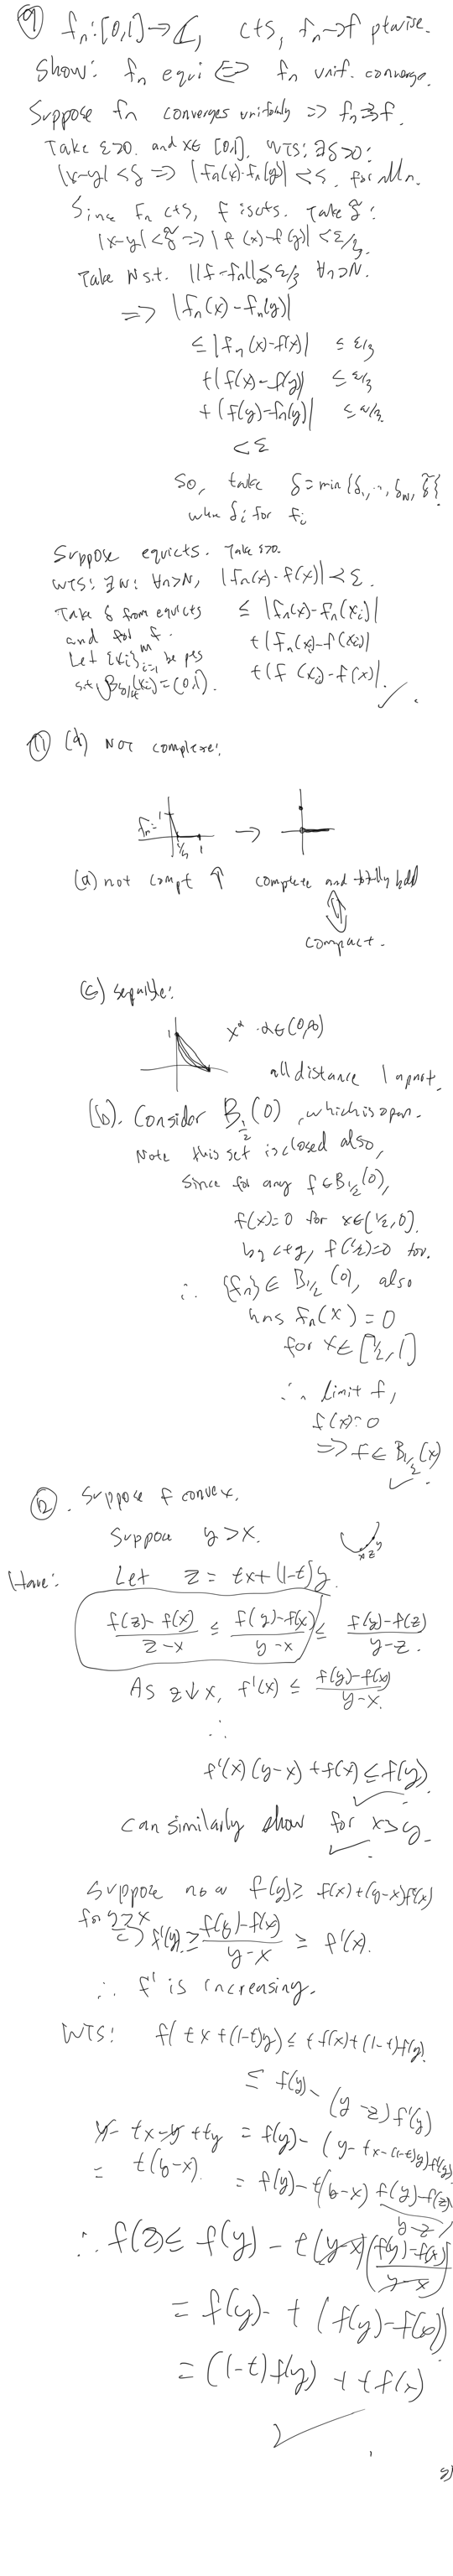 ⑨ fn: [0,1] → ℂ, cts, fn → f ptwise.
Show: fn equi ⟺ fn unif. converge.
Suppose fn converges uniformly ⇒ fn ⇉ f.
Take ε>0. and x∈ [0,1]. WTS: ∃δ>0:
|x-y|<δ ⇒ |fn(x)-fn(y)|<ε, for all n.
Since fn cts, f is cts. Take δ̃:
|x-y|<δ̃ ⇒ |f(x)-f(y)|<ε/3.
Take N s.t. ||f-fn||∞ ≤ ε/3 ∀n>N.
⇒ |fn(x)-fn(y)|
≤ |fn(x)-f(x)| ≤ ε/3
+|f(x)-f(y)| ≤ ε/3
+ |f(y)-fn(y)| ≤ ε/3.
< ε
So, take δ=min{δ1,..,δN, δ̃}
when δi for fi
Suppose equicts. Take ε>0.
WTS: ∃N: ∀n>N, |fn(x)-f(x)|<ε.
Take δ from equicts ≤ |fn(x)-fn(xi)|
and for f. +|fn(xi)-f(xi)|
Let {xi}ᵐi=1 be pts +|f(xi)-f(x)|.
s.t. ∪Bδ/4(xi)=(0,1).
⑪ (d) Not complete:
fn = 1 1/n 1 →
(a) not compt ↑ complete and totally bdd
⇕
compact.
(c) separable:
1 x^α α∈(0,∞)
all distance 1 apart.
(b). Consider B1/2(0), which is open.
Note this set is closed also,
Since for any f∈B1/2(0),
f(x)=0 for x∈(1/2,0].
by ctg, f(1/2)=0 too.
∴ {fn}∈ B1/2(0), also
has fn(x)=0
for x∈[1/2,1]
∴ limit f,
f(x)=0
⇒ f∈B1/2(x)
⑫. Suppose f convex.
Suppose y>x. x z y
Have: Let z = tx+(1-t)y.
f(z)-f(x)/z-x ≤ f(y)-f(x)/y-x ≤ f(y)-f(z)/y-z.
As z↓x, f'(x) ≤ f(y)-f(x)/y-x.
∴
f'(x)(y-x)+f(x) ≤ f(y).
Can similarly show for x>y.
Suppose now f(y)≥ f(x)+(y-x)f'(x)
for y≥x
⟺ f'(y) ≥ f(y)-f(x)/y-x ≥ f'(x).
∴ f' is increasing.
WTS: f(tx+(1-t)y) ≤ tf(x)+(1-t)f(y).
≤ f(y)-(y-z)f'(y)
y-tx-y+ty = f(y)-(y-tx-(1-t)y)f'(y)
= t(y-x) = f(y)-t(y-x) f(y)-f(z)/y-z
∴ f(z) ≤ f(y)-t(y-x)(f(y)-f(x)/y-x)
= f(y)-t(f(y)-f(x))
= (1-t)f(y)+tf(x)